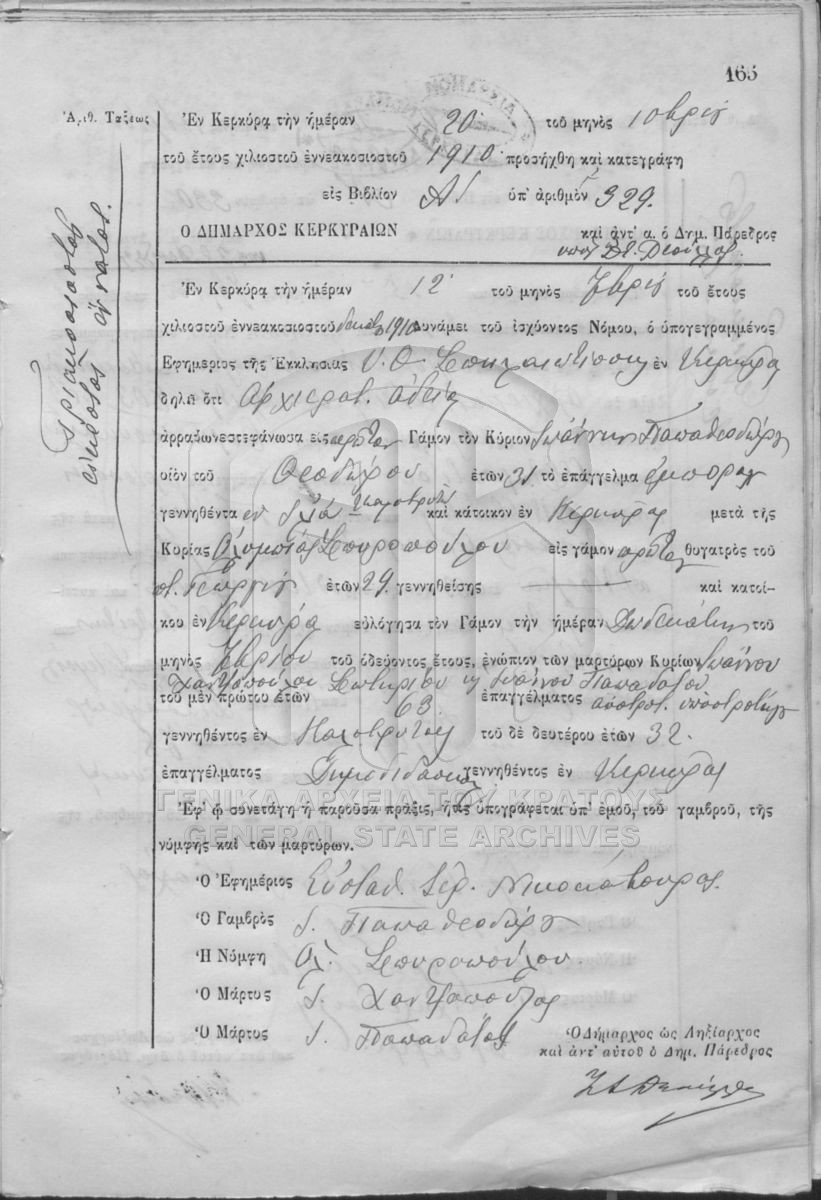 165
Ἀριθ. Τάξεως
τριακοσιοστὸς
εἰκοστὸς ἔννατος.
Ἐν Κερκύρᾳ τὴν ἡμέραν 20 τοῦ μηνὸς
τοῦ ἔτους χιλιοστοῦ ἐννεακοσιοστοῦ 1910 προσήχθη καὶ κατεγράφη
εἰς Βιβλίον ὑπ' ἀριθμὸν 329.
Ὁ ΔΗΜΑΡΧΟΣ ΚΕΡΚΥΡΑΙΩΝ καὶ ἀντ' α. ὁ Δημ. Πάρεδρος
Ἐν Κερκύρᾳ τὴν ἡμέραν 12 τοῦ μηνὸς τοῦ ἔτους
χιλιοστοῦ ἐννεακοσιοστοῦ 1910 δυνάμει τοῦ ἰσχύοντος Νόμου, ὁ ὑπογεγραμμένος
Ἐφημέριος τῆς Ἐκκλησίας Υ. Θ. Σπηλαιωτίσσης ἐν Κερκύρᾳ
δηλῶ ὅτι Ἀρχιερατ. ἀδείᾳ
ἀρραβωνεστεφάνωσα εἰς πρῶτον Γάμον τὸν Κύριον Ἰωάννην Παπαθεοδώρου
υἱὸν τοῦ Θεοδώρου ἐτῶν 31 τὸ ἐπάγγελμα ἔμπορος
γεννηθέντα ἐν Καλαβρύτων καὶ κάτοικον ἐν Κερκύρᾳ μετὰ τῆς
Κυρίας Ὀλυμπίας Σπυροπούλου εἰς γάμον πρῶτον θυγατρὸς τοῦ
π. Γεωργίου ἐτῶν 29 γεννηθείσης — καὶ κατοί-
κου ἐν Κερκύρᾳ εὐλόγησα τὸν Γάμον τὴν ἡμέραν Δωδεκάτην τοῦ
μηνὸς Χβρίου τοῦ ὁδεύοντος ἔτους, ἐνώπιον τῶν μαρτύρων Κυρίων Ἰωάννου
Χαντζοπούλου Σωτηρίου κ Ἰωάννου Παπαδάτου
τοῦ μὲν πρώτου ἐτῶν 63 ἐπαγγέλματος ἀποστρ. ὑποστρατήγου
γεννηθέντος ἐν Καλαβρύτοις τοῦ δὲ δευτέρου ἐτῶν 32.
ἐπαγγέλματος Δημοδιδασκ. γεννηθέντος ἐν Κερκύρᾳ
ΓΕΝΙΚΑ ΑΡΧΕΙΑ ΤΟΥ ΚΡΑΤΟΥΣ
Ἐφ' ᾧ συνετάγη ἡ παροῦσα πρᾶξις, ἥτις ὑπογράφεται ὑπ' ἐμοῦ, τοῦ γαμβροῦ, τῆς
GENERAL STATE ARCHIVES
νύμφης καὶ τῶν μαρτύρων.
Ὁ Ἐφημέριος Εὐσταθ. Ἱερ.
Ὁ Γαμβρὸς Ι. Παπαθεοδώρου
Ἡ Νύμφη Ὀλ. Σπυροπούλου.
Ὁ Μάρτυς Ι. Χαντζόπουλος
Ὁ Μάρτυς Ι. Παπαδάτος
Ὁ Δήμαρχος ὡς Ληξίαρχος
καὶ ἀντ' αὐτοῦ ὁ Δημ. Πάρεδρος